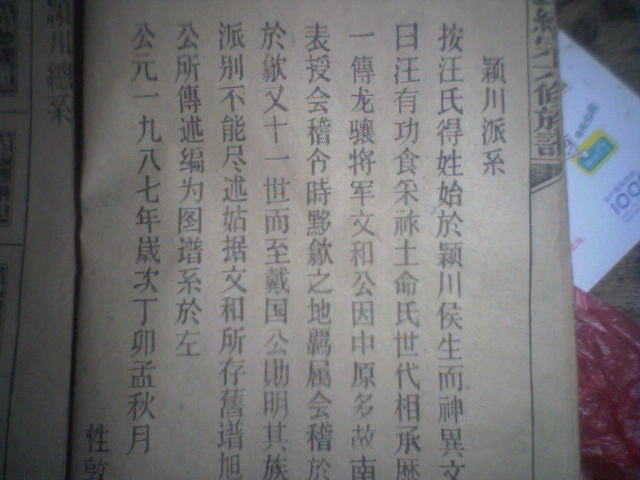 颍川派系
按汪氏得姓始於颍川侯生而神異文
曰汪有功食采祚土命氏世代相承歷
一傳龙骧将军文和公因中原多故南
表授会稽令時黟歙之地羁属会稽於
於歙又十一世而至戴国公勋明其族
派别不能尽述姑据文和所存舊谱旭
公所傳述编为图谱系於左
公元一九八七年歲次丁卯孟秋月
性敦
颍川總系
六修族譜
100